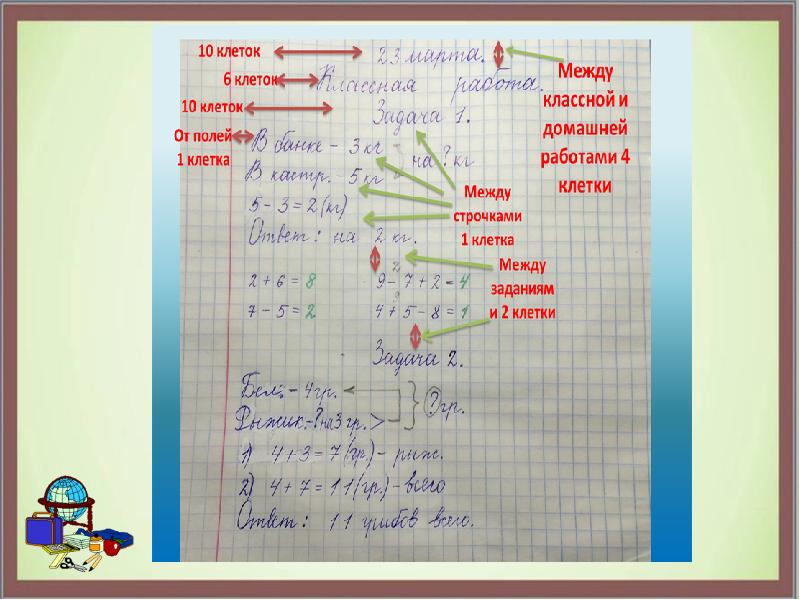 10 клеток
23 марта.
6 клеток
Классная работа.
10 клеток
Задача 1.
Между классной и домашней работами 4 клетки
От полей 1 клетка
В банке – 3 кг
В кастр. – 5 кг
на ? кг
Между строчками 1 клетка
5 – 3 = 2 (кг)
Ответ: на 2 кг.
Между заданиям и 2 клетки
2 + 6 = 8
2
9 – 7 + 2 = 4
7 – 5 = 2
9
4 + 5 – 8 = 1
Задача 2.
Бел. – 4 гр.
Рыжик. – ? на 3 гр. >
? гр.
1) 4 + 3 = 7 (гр.) – рыж.
2) 4 + 7 = 11 (гр.) – всего
Ответ: 11 грибов всего.